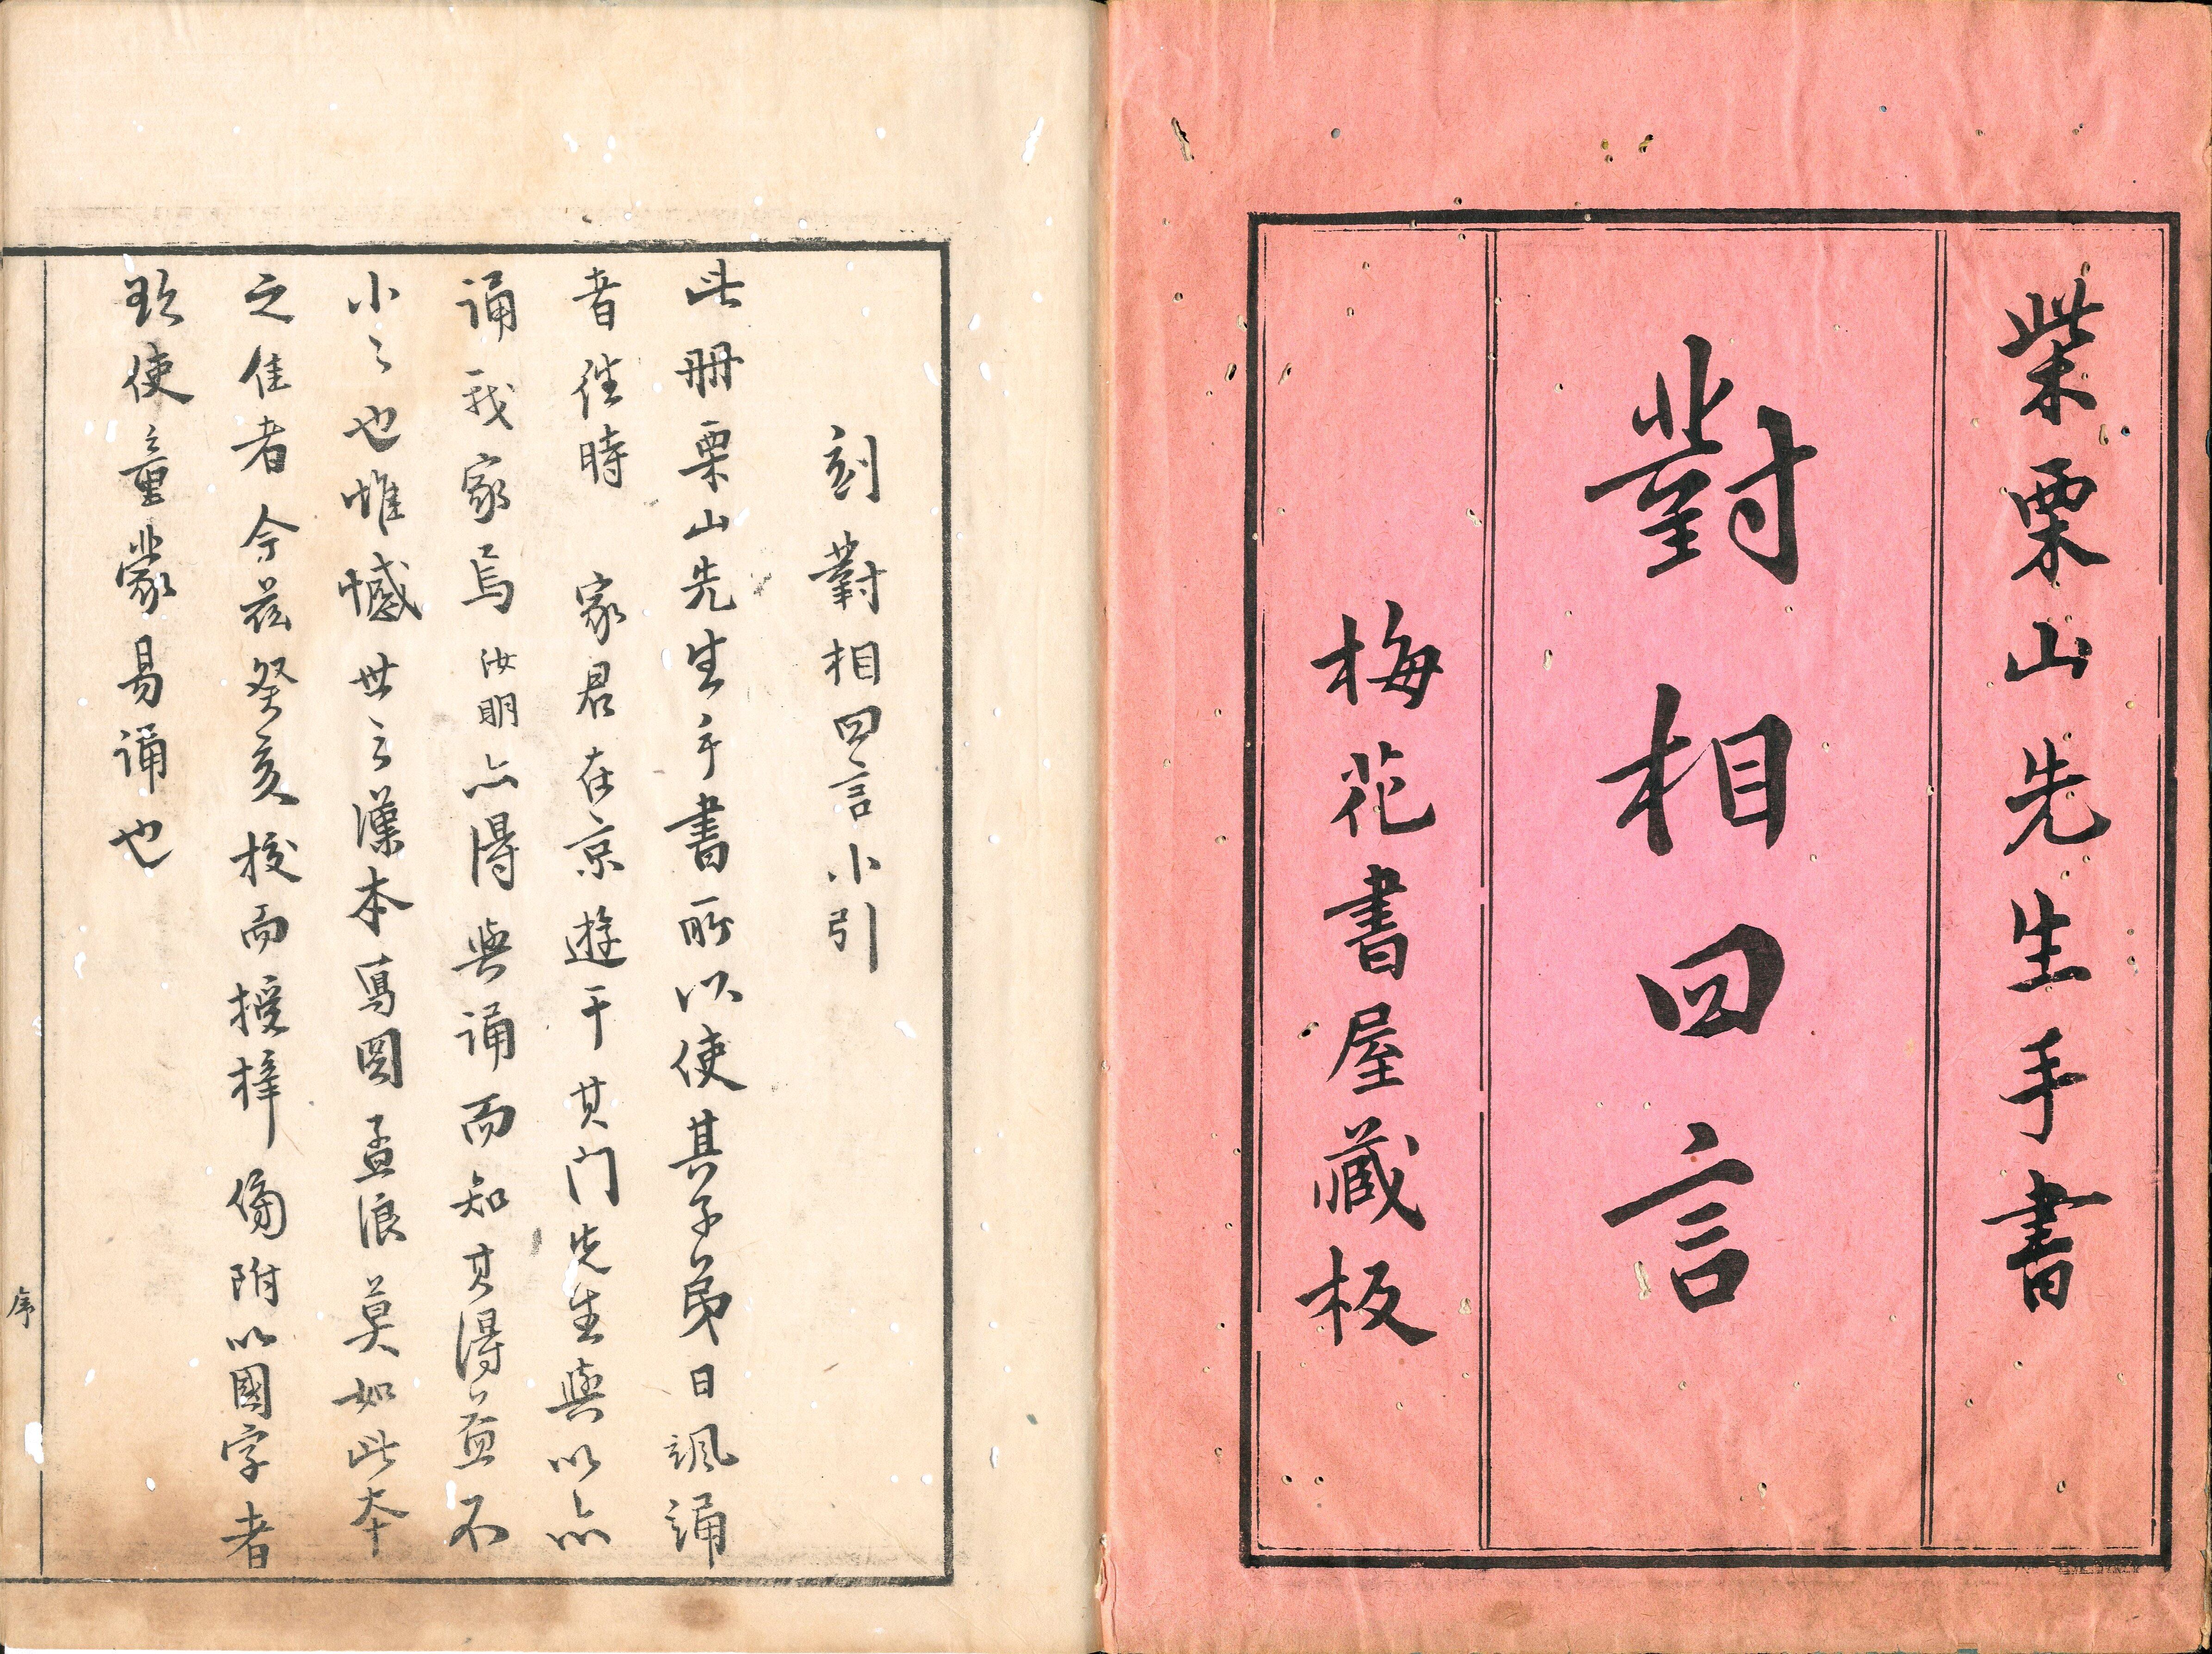 柴栗山先生手書
對相四言
梅花書屋藏板
刻對相四言小引
此冊栗山先生手書所以使其子弟日諷誦
者往時 家君在京遊于其门先生與以亦
誦我家焉汝明亦得與誦而知其得益不
小〻也惟憾世之漢本寫圖孟浪莫如此本
之佳者今茲癸亥校而授梓傍附以國字者
欲使童蒙易誦也
序